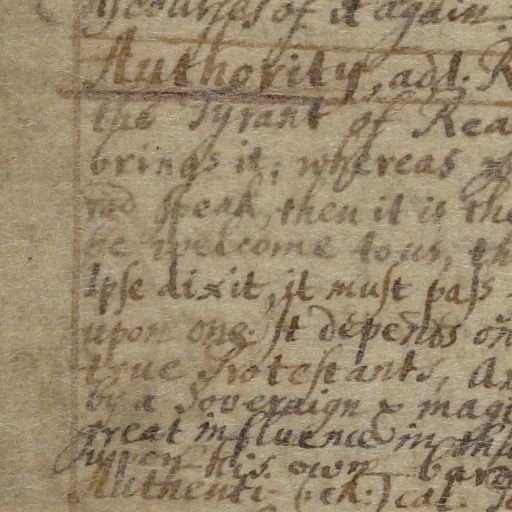 discourses of it again.
Authority, add. R
the Tyrant of Rea
brings it; whereas
speak, then it is the
be welcome to us, th
Ipse dixit, it must pass
upon one. It depends on
true Protestants, A
by a Soveraign & magi
great influence in this
upon his own bare
Authenti- (ck:) cal.